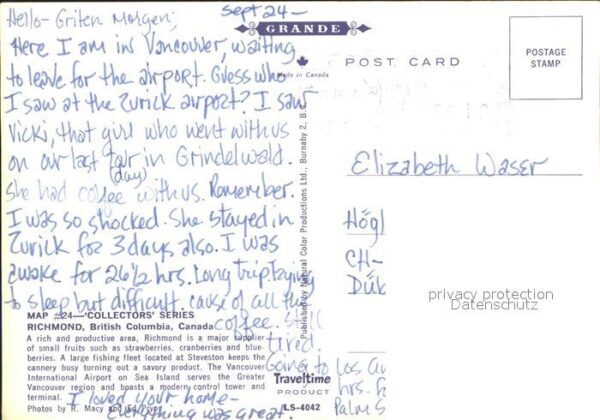 Sept 24-
Hello- Griten Morgen,
Here I am in Vancouver, waiting
to leave for the airport. Guess who
I saw at the Zurick airport? I saw
Vicki, that girl who went with us
on our last tour in Grindelwald.
(day)
She had coffee with us. Remember.
I was so shocked. She stayed in
Zurick for 3 days also. I was
awake for 26 1/2 hrs. Long trip. Trying
to sleep but difficult. cause of all the
coffee. Still
tired.
Going to Los
hrs.
Palm S
I loved your home-
Everything was great.
MAP #24—'COLLECTORS' SERIES
RICHMOND, British Columbia, Canada
A rich and productive area, Richmond is a major supplier
of small fruits such as strawberries, cranberries and blue-
berries. A large fishing fleet located at Steveston keeps the
cannery busy turning out a savory product. The Vancouver
International Airport on Sea Island serves the Greater
Vancouver region and boasts a modern control tower and
terminal.
Photos by R. Macy and Ed Pryor
GRANDE
Made in Canada
Published by Natural Color Productions Ltd., Burnaby 2, B.
Traveltime
PRODUCT
LS-4042
POST CARD
POSTAGE
STAMP
Elizabeth Waser
Högl
CH-
Dük
privacy protection
Datenschutz